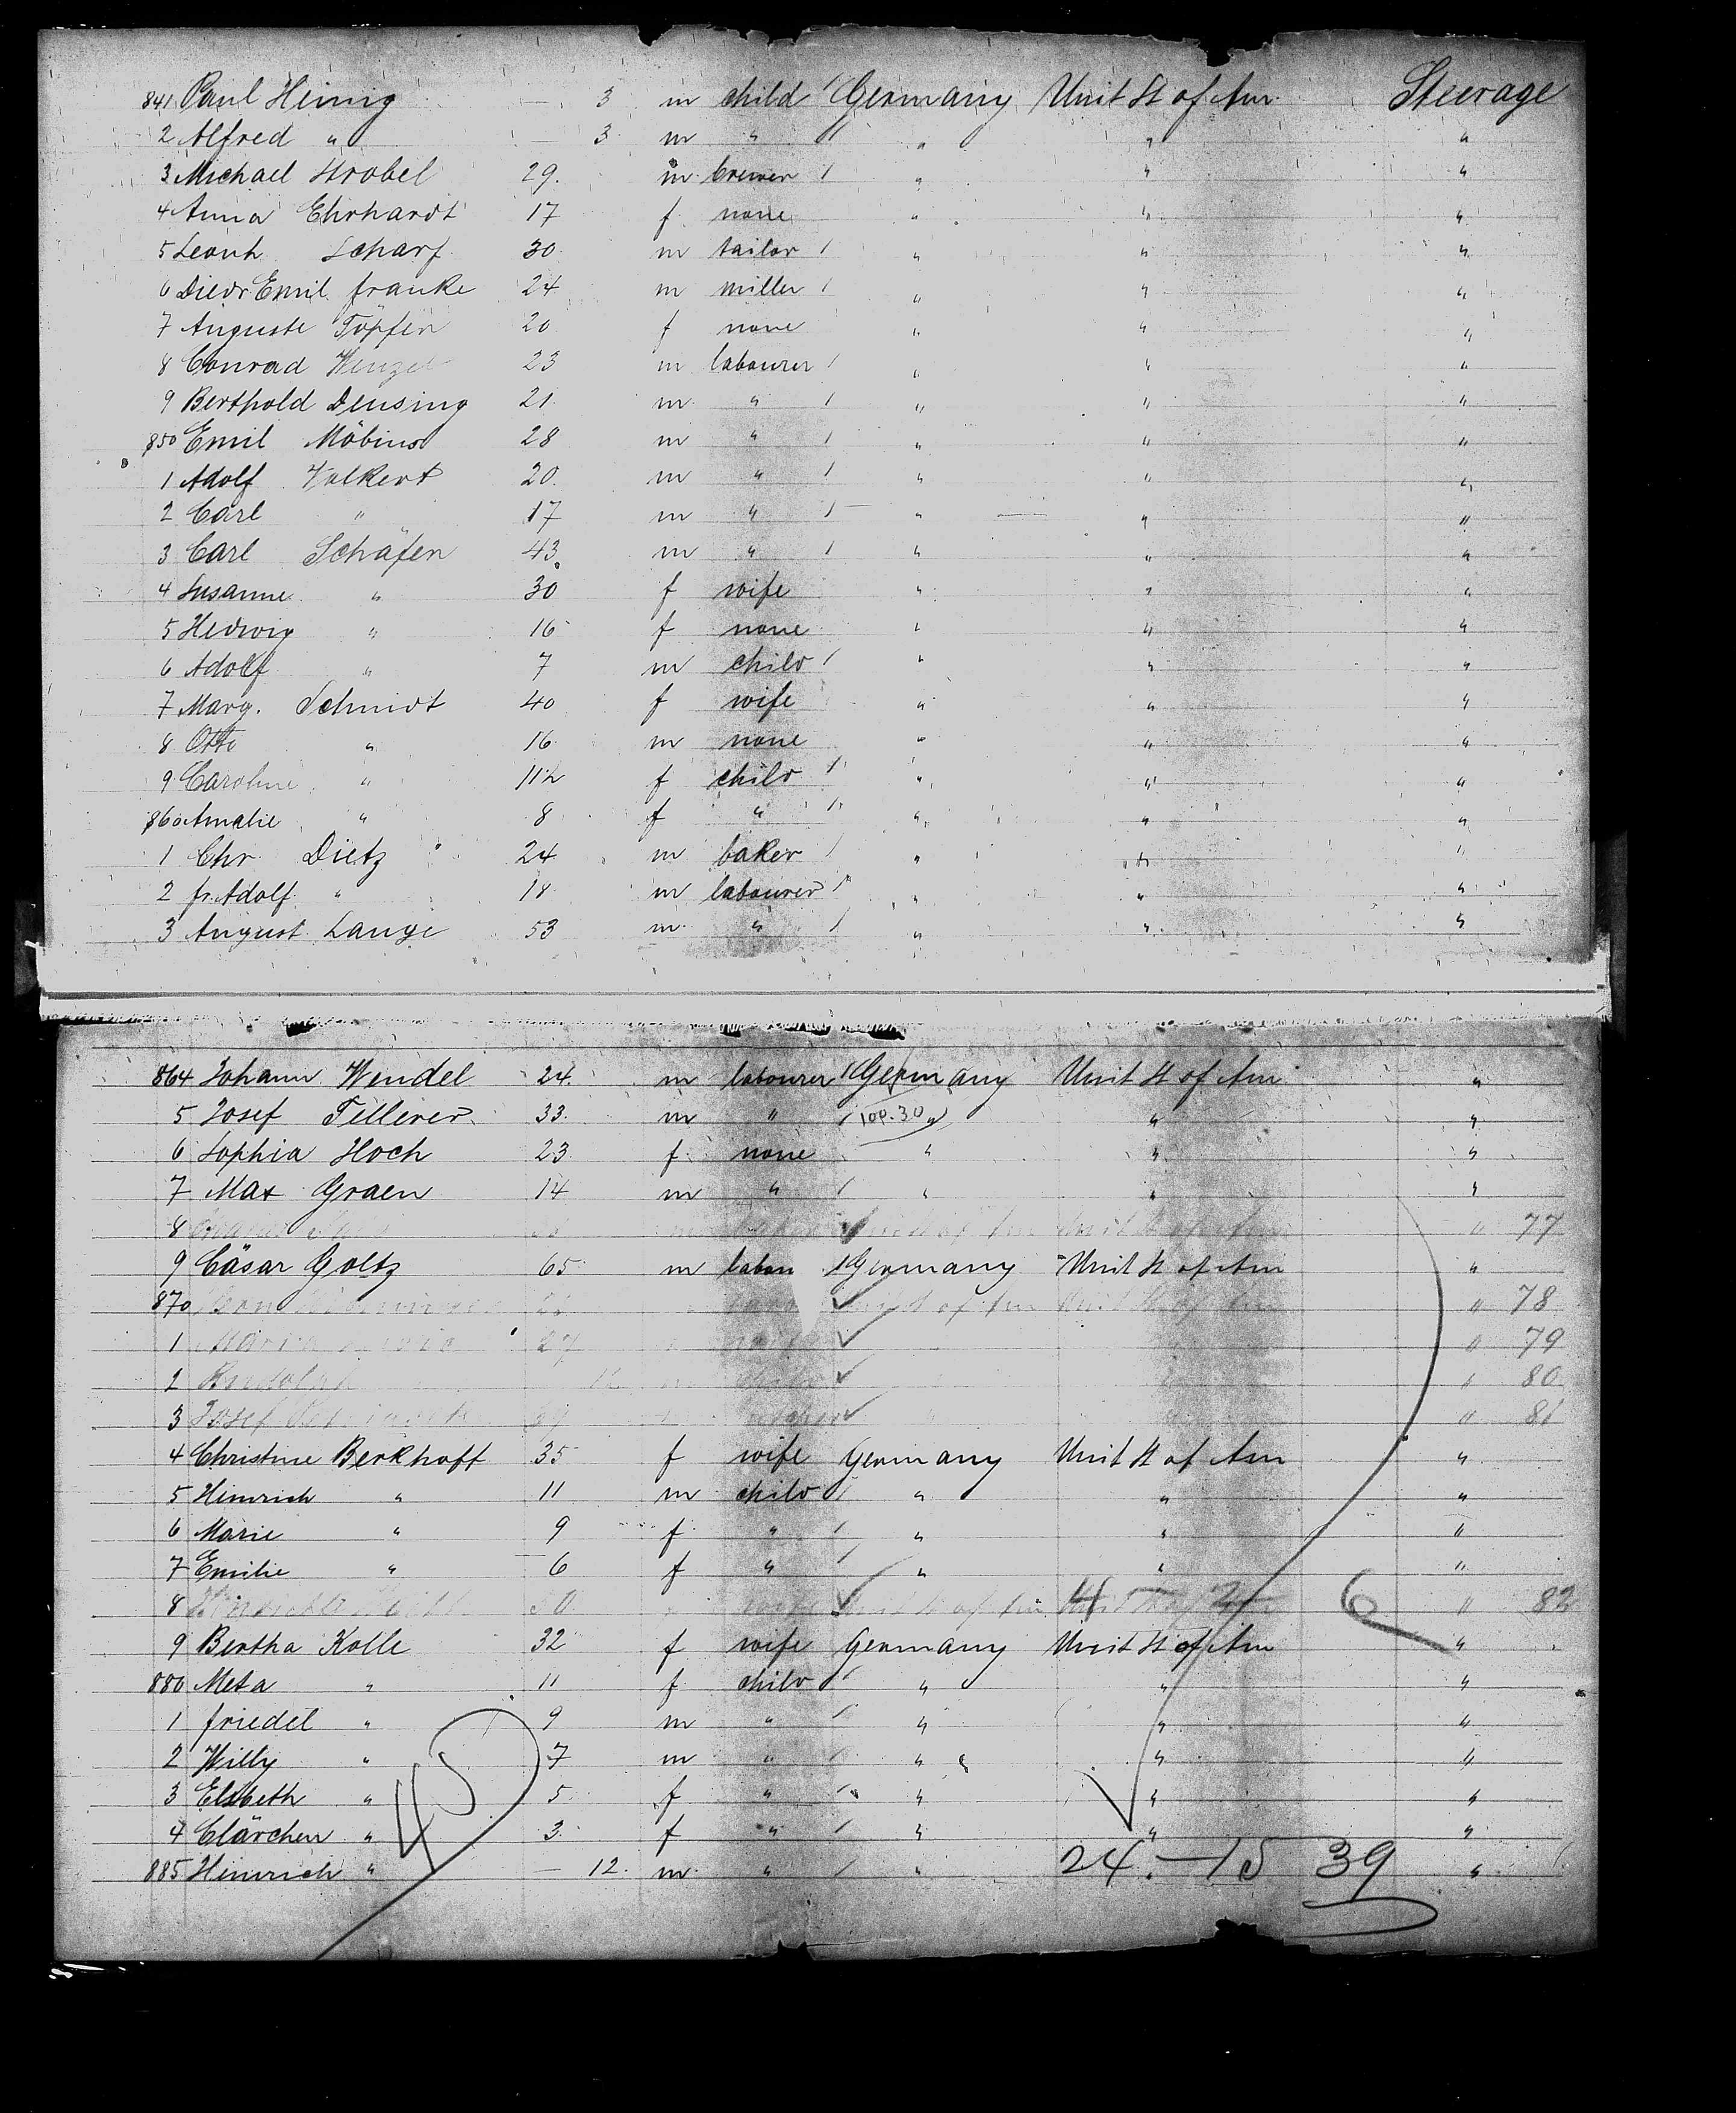 841 Paul Heinig — 3 m child / Germany Unit St of Am. Steerage
2 Alfred " — 3 m " / " " "
3 Michael Strobel 29. m brewer / " " "
4 Anna Ehrhardt 17 f none " " "
5 Leonh Scharf 30 m tailor / " " "
6 Diedr Emil Franke 24 m miller / " " "
7 Auguste Töpfer 20 f none " " "
8 Conrad Wenzel 23 m labourer / " " "
9 Berthold Densing 21 m " / " " "
850 Emil Möbius 28 m " / " " "
1 Adolf Volkert 20 m " / " " "
2 Carl " 17 m " / " " "
3 Carl Schäfer 43 m " / " " "
4 Susanne " 30 f wife " " "
5 Hedwig " 16 f none " " "
6 Adolf " 7 m child / " " "
7 Marg. Schmidt 40 f wife " " "
8 Otto " 16 m none " " "
9 Caroline " 11 1/2 f child / " " "
860 Amalie " 8 f " / " " "
1 Chr. Dietz 24 m baker / " " "
2 Fr. Adolf " 18 m labourer / " " "
3 August Lange 53 m " / " " "
864 Johann Wendel 24. m labourer / Germany Unit St of Am "
5 Josef Fellerer 33. m " / 10p.30 " " "
6 Sophia Hoch 23 f none " " "
7 Max Graen 14 m " / " " "
8 " 77
9 Cäsar Goltz 65 m labou / Germany Unit St of Am "
870 " 78
1 Maria 27 " 79
2 " 80
3 Josef " 81
4 Christine Berkhoff 35 f wife Germany Unit St of Am "
5 Hinrich " 11 m child / " " "
6 Marie " 9 f " / " " "
7 Emilie " 6 f " / " " "
8 wife 6 " 82
9 Bertha Kolle 32 f wife Germany Unit St of Am "
880 Meta " 11 f child / " " "
1 Friedel " 9 m " / " " "
2 Willy " 7 m " / " " "
3 Elsbeth " 5 f " / " " "
4 Clärchen " 3 f " / " " "
885 Hinrich " — 12. m " / " "
45
24. — 15 39